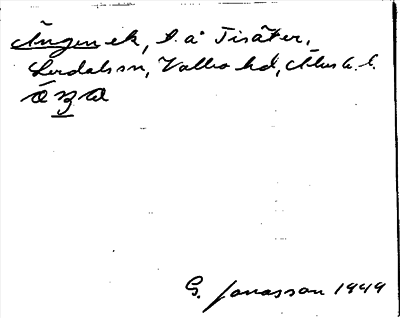 Ängen ek, t. a Tisäter,
Lerdals sn, Valbo hd, Älvsb. l.
G. Jonasson 1949